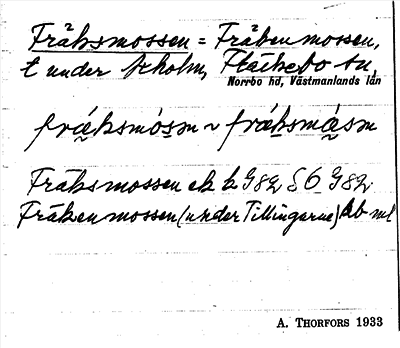 Fräksmossen = Fräkenmossen,
t under Ekholm, Fläckebo sn,
Norrbo hd, Västmanlands län
fräksmósen ~ fräksmåsen
Fräksmossen ek k G82 SO G82
Fräkenmossen (under Tillingarne) Hb ml
A. THORFORS 1933